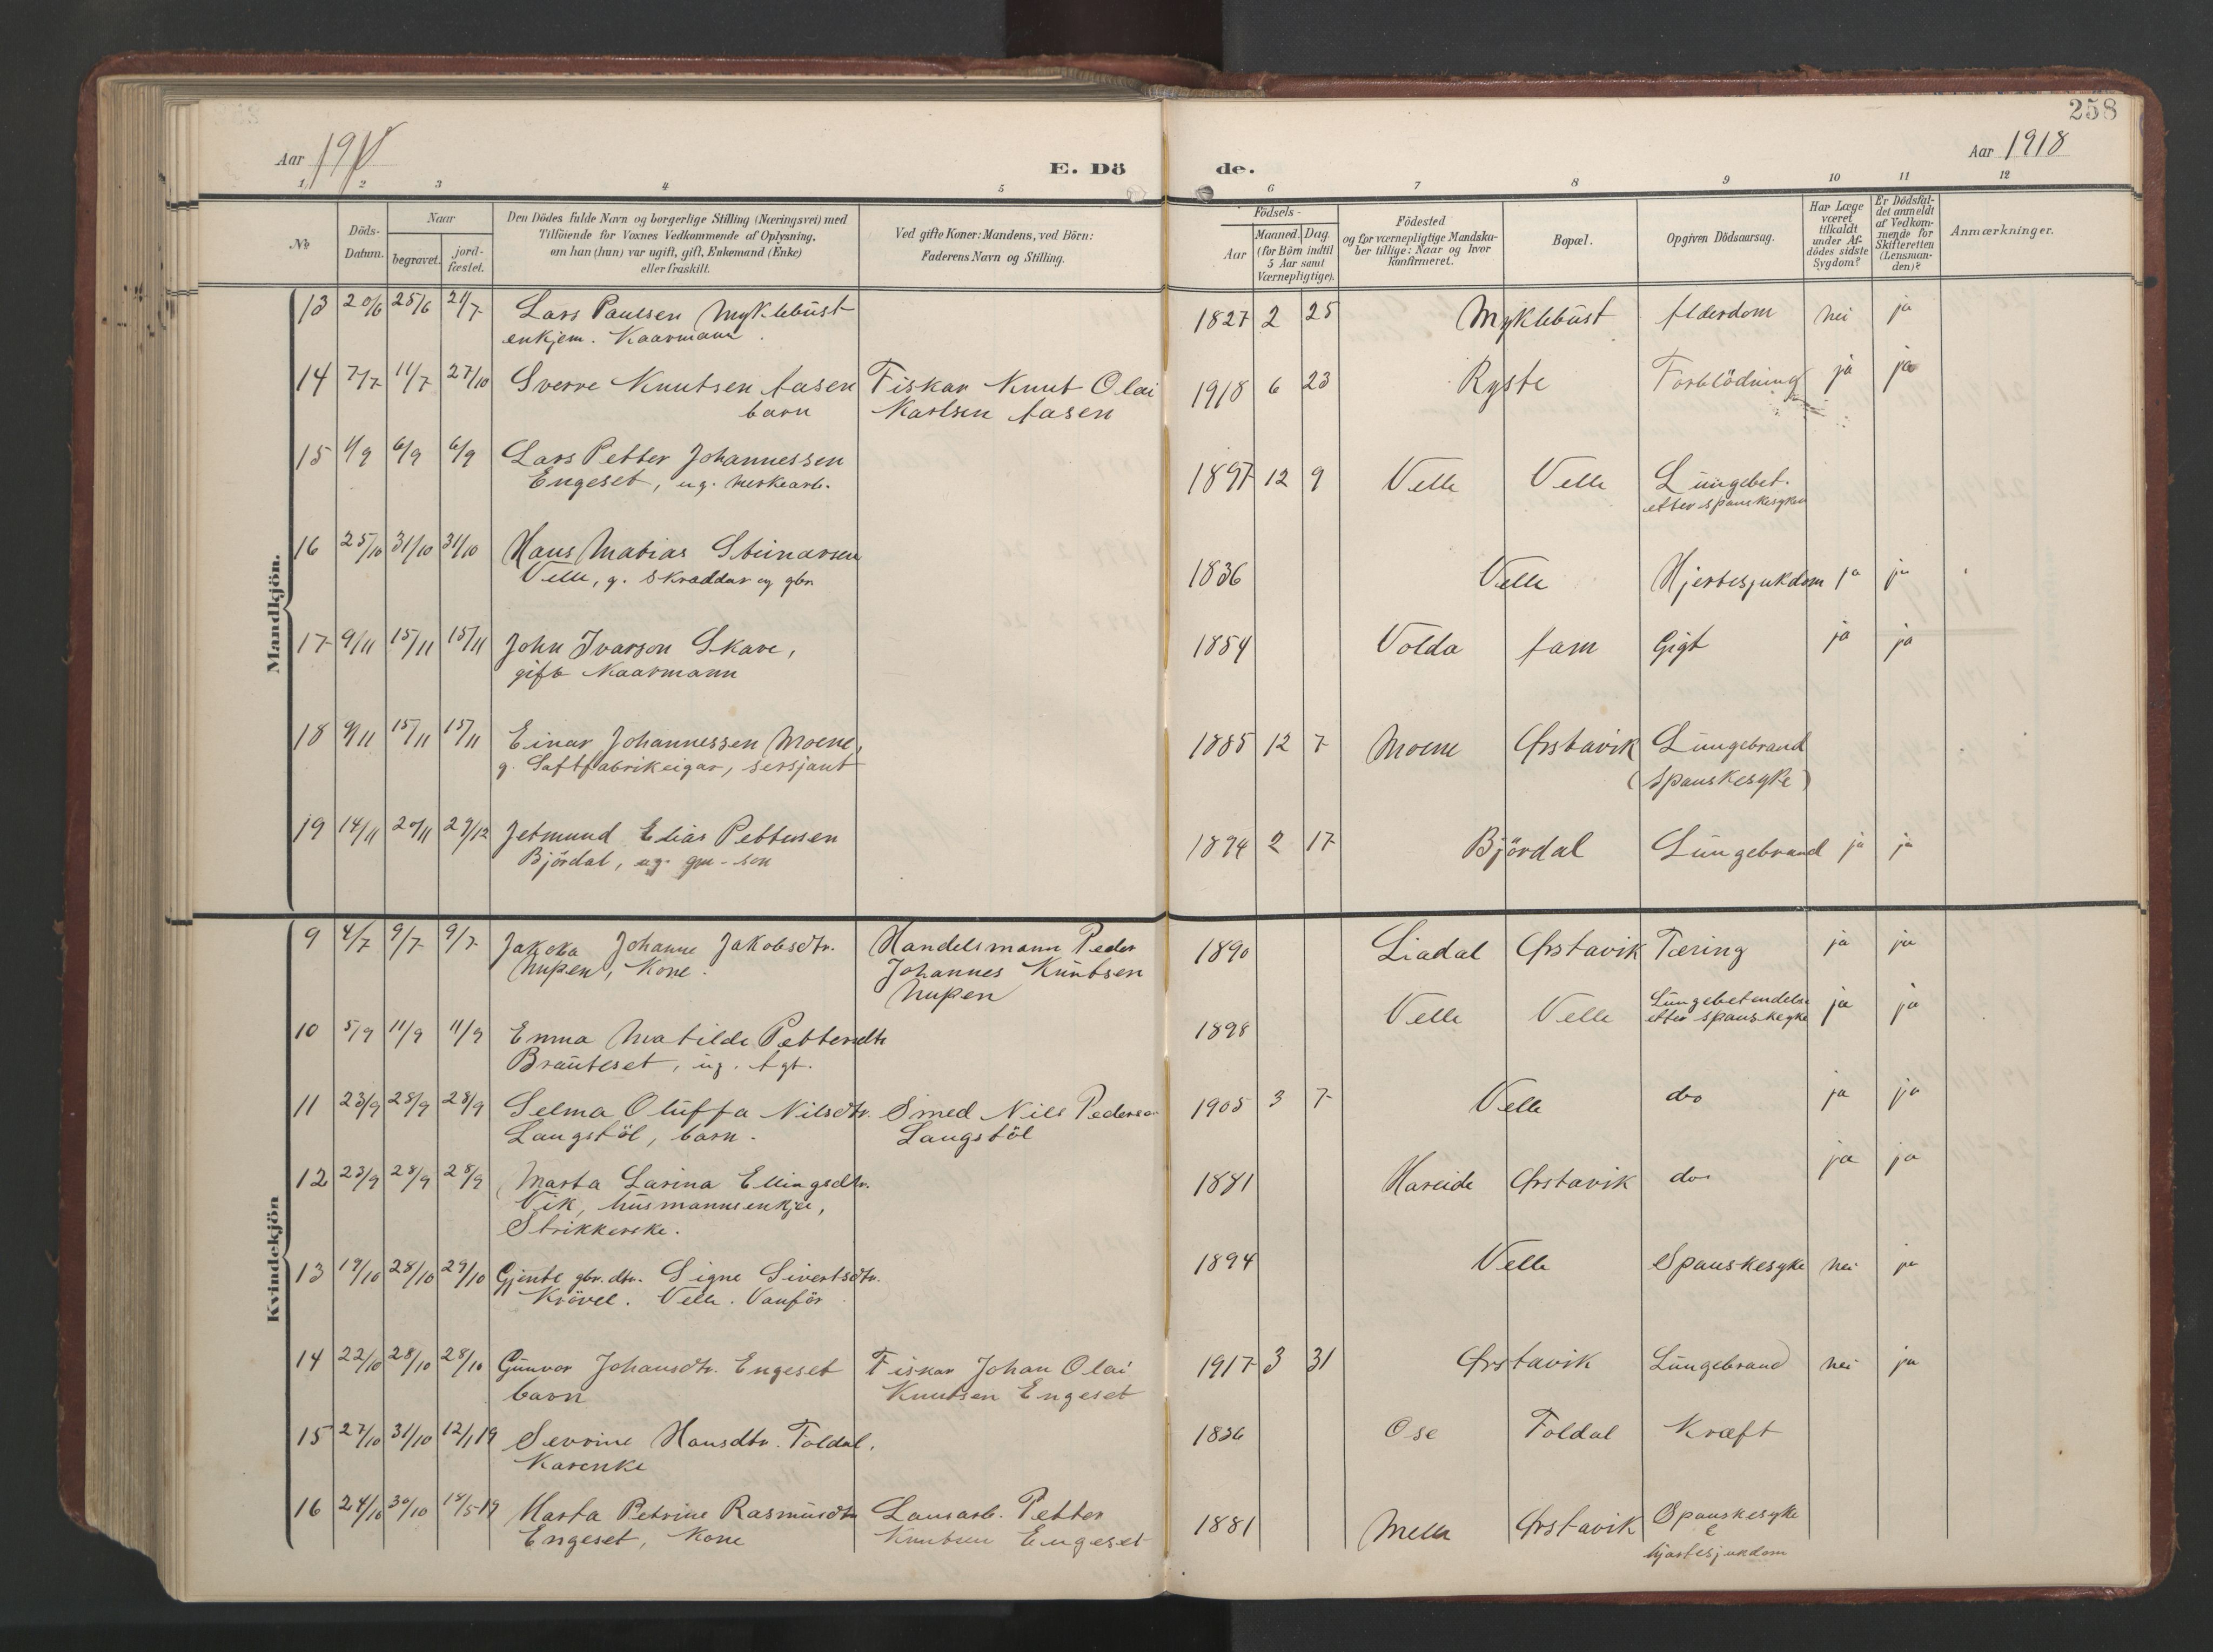 258
Aar 1918
E. Dö
de.
Aar 1918
1 2 3 4 5 6 7 8 9 10 11 12
No
Döds-
Datum.
Naar
begravet.
jord-
fæstet.
Den Dödes fulde Navn og borgerlige Stilling (Næringsvei) med
Tilföiende for Voxnes Vedkommende af Oplysning.
om han (hun) var ugift, gift, Enkemand (Enke)
eller fraskilt.
Ved gifte Koner: Mandens, ved Börn:
Faderens Navn og Stilling.
Födsels-
Aar
Maaned. Dag.
(for Börn indtil
5 Aar samt
Værnepligtige).
Födested
og for værnepligtige Mandska-
ber tillige: Naar og hvor
konfirmeret.
Bopæl.
Opgiven Dödsaarsag.
Har Læge
været
tilkaldt
under Af-
dödes sidste
Sygdom?
Er Dödsfal-
det anmeldt
af Vedkom-
mende for
Skifteretten
(Lensman-
den)?
Anmærkninger.
Mandkjön.
13 20/6 25/6 21/7 Lars Paulsen Myklebust 1827 2 25 Myklebust Alderdom nei ja
enkjem. Kaarmann.
14 7/7 11/7 27/10 Sverre Knutsen Aasen Fiskar Knut Olai 1918 6 23 Ryste Forblödning ja ja
barn Karlsen Aasen
15 1/9 6/9 6/9 Lars Petter Johannessen 1897 12 9 Velle Velle Lungebet.
Engeset, ug. etter spanskesyken
16 25/10 31/10 31/10 Hans Matias Steinarsen 1836 Velle Hjertesjukdom ja ja
Velle, g. skraddar og gbr.
17 9/11 15/11 15/11 John Ivarson Skare, 1854 Volda Aam Gigt ja ja
gift Kaarmann
18 9/11 15/11 15/11 Einar Johannessen Moene, 1885 12 7 Moene Ørstavik Lungebrand
g. Saftfabrikeigar, sersjant (spanskesyke)
19 14/11 20/11 29/12 Jetmund Elias Pettersen 1894 2 17 Björdal Lungebrand ja ja
Björdal, ug. son
Kvindekjön
9 4/7 9/7 9/7 Jakoba Johanne Jakobsdtr. Handelsmann Peder 1890 Liadal Ørstavik Tæring ja ja
Nupen, Kone. Johannes Knutsen
Nupen
10 5/9 11/9 11/9 Emma Matilde Pettersdtr 1898 Velle Velle Lungebetendelse ja ja
Brauteset, ug. etter spanskesyke
11 23/9 28/9 28/9 Selma Oluffa Nilsdtr. Smed Nils Pederse 1905 3 7 Velle do ja ja
Langstöl, barn. Langstöl
12 23/9 28/9 28/9 Marta Larina Ellingsdtr. 1881 Hareide Ørstavik do ja ja
Vik, husmannsenkje,
Strikkerske.
13 19/10 28/10 29/10 Gjente gbr. dtr. Signe Sivertsdtr. 1894 Velle Spanskesyke nei ja
Krövel. Velle. Vanför
14 22/10 28/10 28/10 Gunvor Johansdtr. Engeset Fiskar Johan Olai 1917 3 31 Ørstavik Lungebrand nei ja
barn Knutsen Engeset
15 27/10 31/10 12/1 19 Sevrine Hansdtr. Foldal. 1836 Ose Foldal Kræft
Karenke
16 24/10 30/10 18/5-19 Marta Petrine Rasmusdtr Lausarb. Petter 1881 Melle Ørstavik Spanskesyke
Engeset, Kone Knutsen Engeset hjartesjukdom